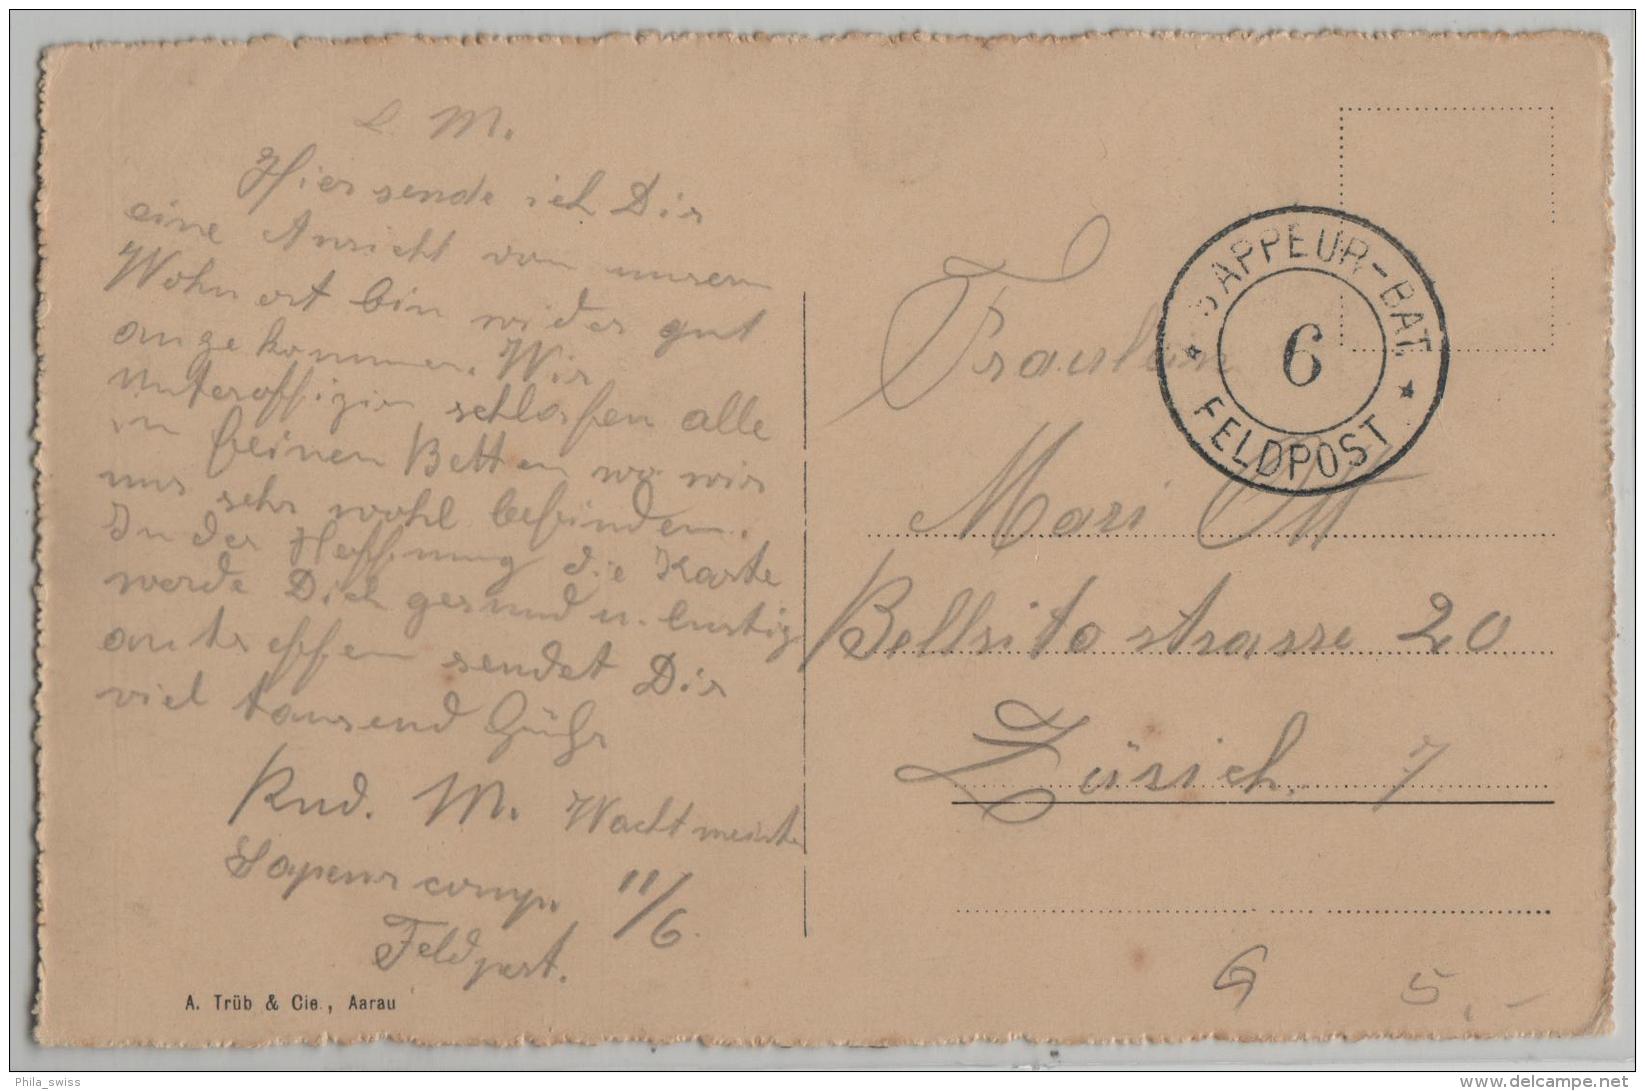 L M.
Hier sende ich Dir
eine Ansicht von unsern
Wohnort bin wider gut
angekommen. Wir
Unteroffizier schlafen alle
in feinen Betten wo wir
uns sehr wohl befinden.
In der Hoffnung die Karte
werde Dich gesund u. lustig
antreffen sendet Dir
viel tausend Grüße
Rud. M. Wachtmeister
Sapeur comp. II/6
Feldpost.
A. Trüb & Cie., Aarau
SAPPEUR-BAT.
6
FELDPOST
Fräulein
Mari Ott
Bellsitostrasse 20
Zürich. 7
5.-
Phila_swiss
www.delcampe.net